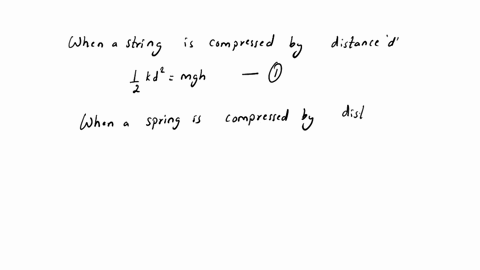 When a string is compressed by distance 'd'
1/2 kd² = mgh — ①
When a spring is compressed by dist